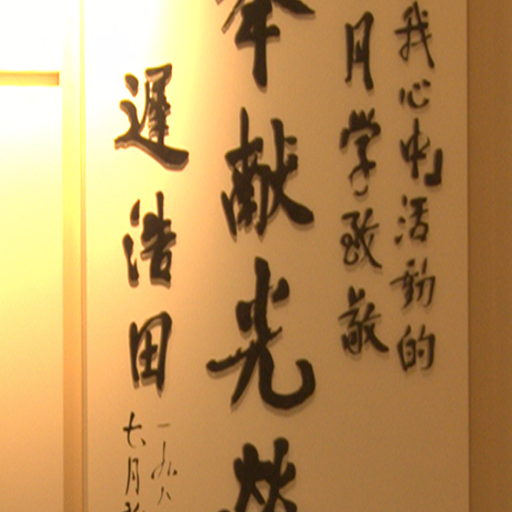 我心中活動的
月学致敬
奉献光荣
遲浩田
一九八
七月